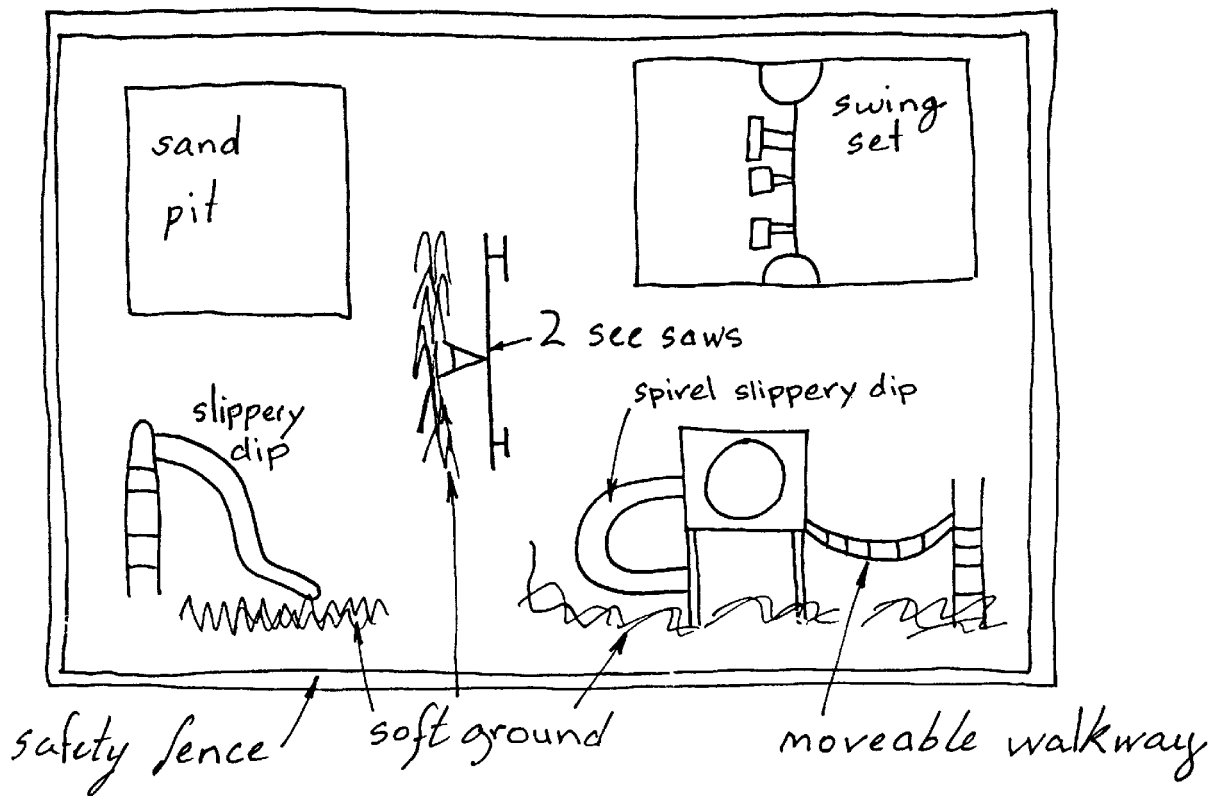 sand
pit
swing
set
2 see saws
spirel slippery dip
slippery
dip
safety fence
soft ground
moveable walkway